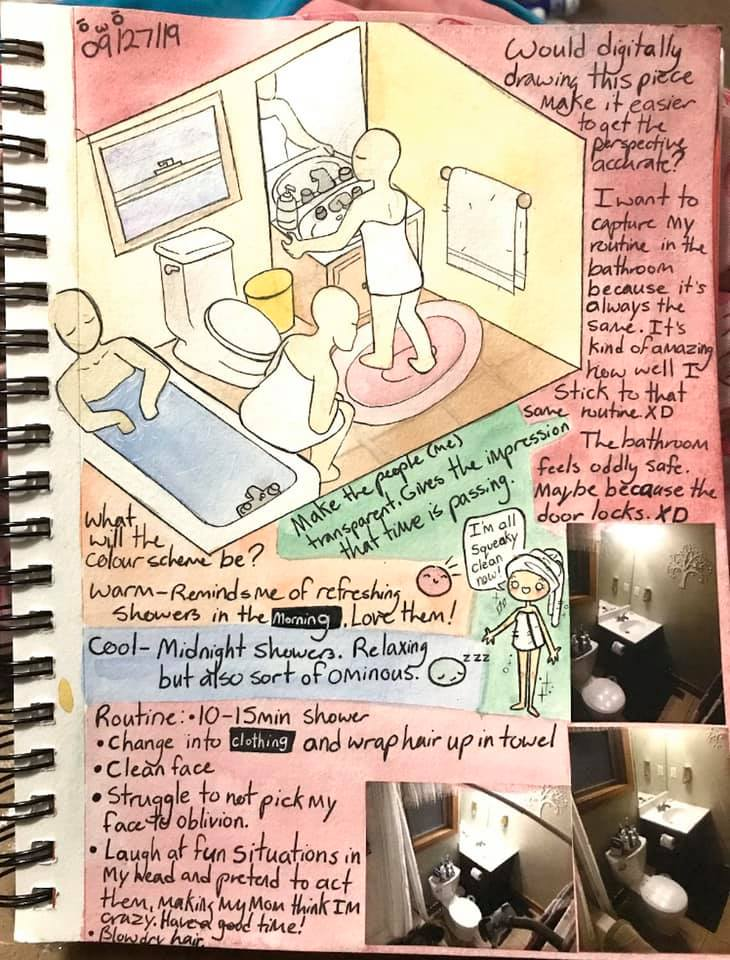 ö w ö
09/27/19
Would digitally
drawing this piece
make it easier
to get the
perspective
accurate?
I want to
capture my
routine in the
bathroom
because it's
always the
same. It's
kind of amazing
how well I
stick to that
same routine. XD
The bathroom
feels oddly safe.
Maybe because the
door locks. XD
Make the people (me)
transparent. Gives the impression
that time is passing.
What
will the
colour scheme be?
I'm all
squeaky
clean
now!
Warm-Reminds me of refreshing
showers in the Morning. Love them!
Cool- Midnight showers. Relaxing
but also sort of ominous.
zzz
Routine: • 10-15min shower
• Change into clothing and wrap hair up in towel
• Clean face
• Struggle to not pick my
face to oblivion.
• Laugh at fun situations in
my head and pretend to act
them, making my Mom think I'm
crazy. Have a good time!
• Blowdry hair